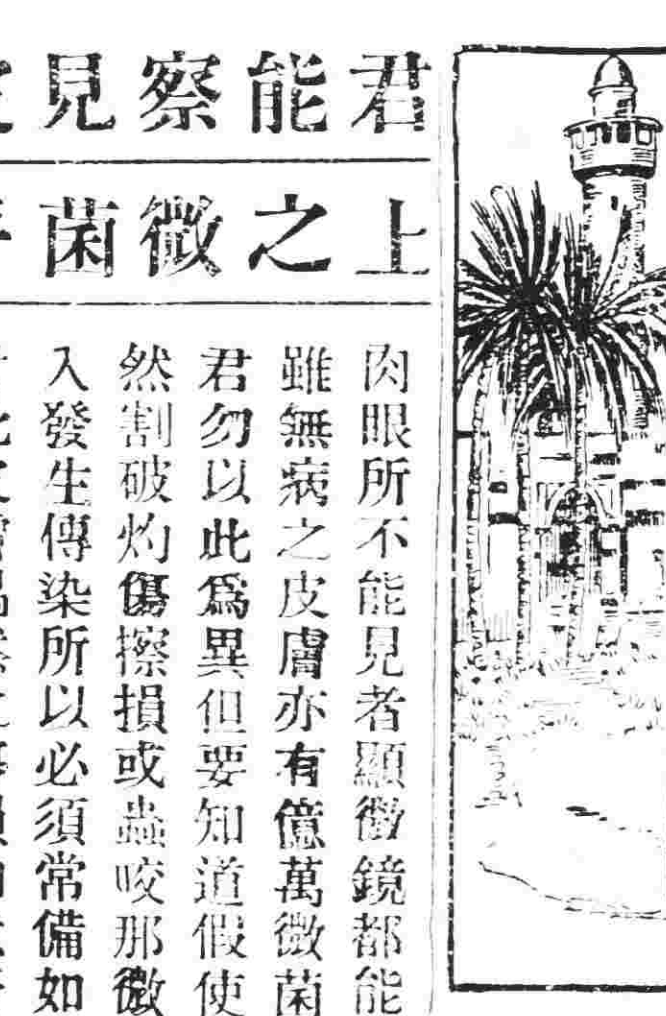 君能察見
上之微菌
肉眼所不能見者顯微鏡都能
雖無病之皮膚亦有億萬微菌
君勿以此為異但要知道假使
然割破灼傷擦損或蟲咬那微
入發生傳染所以必須常備如